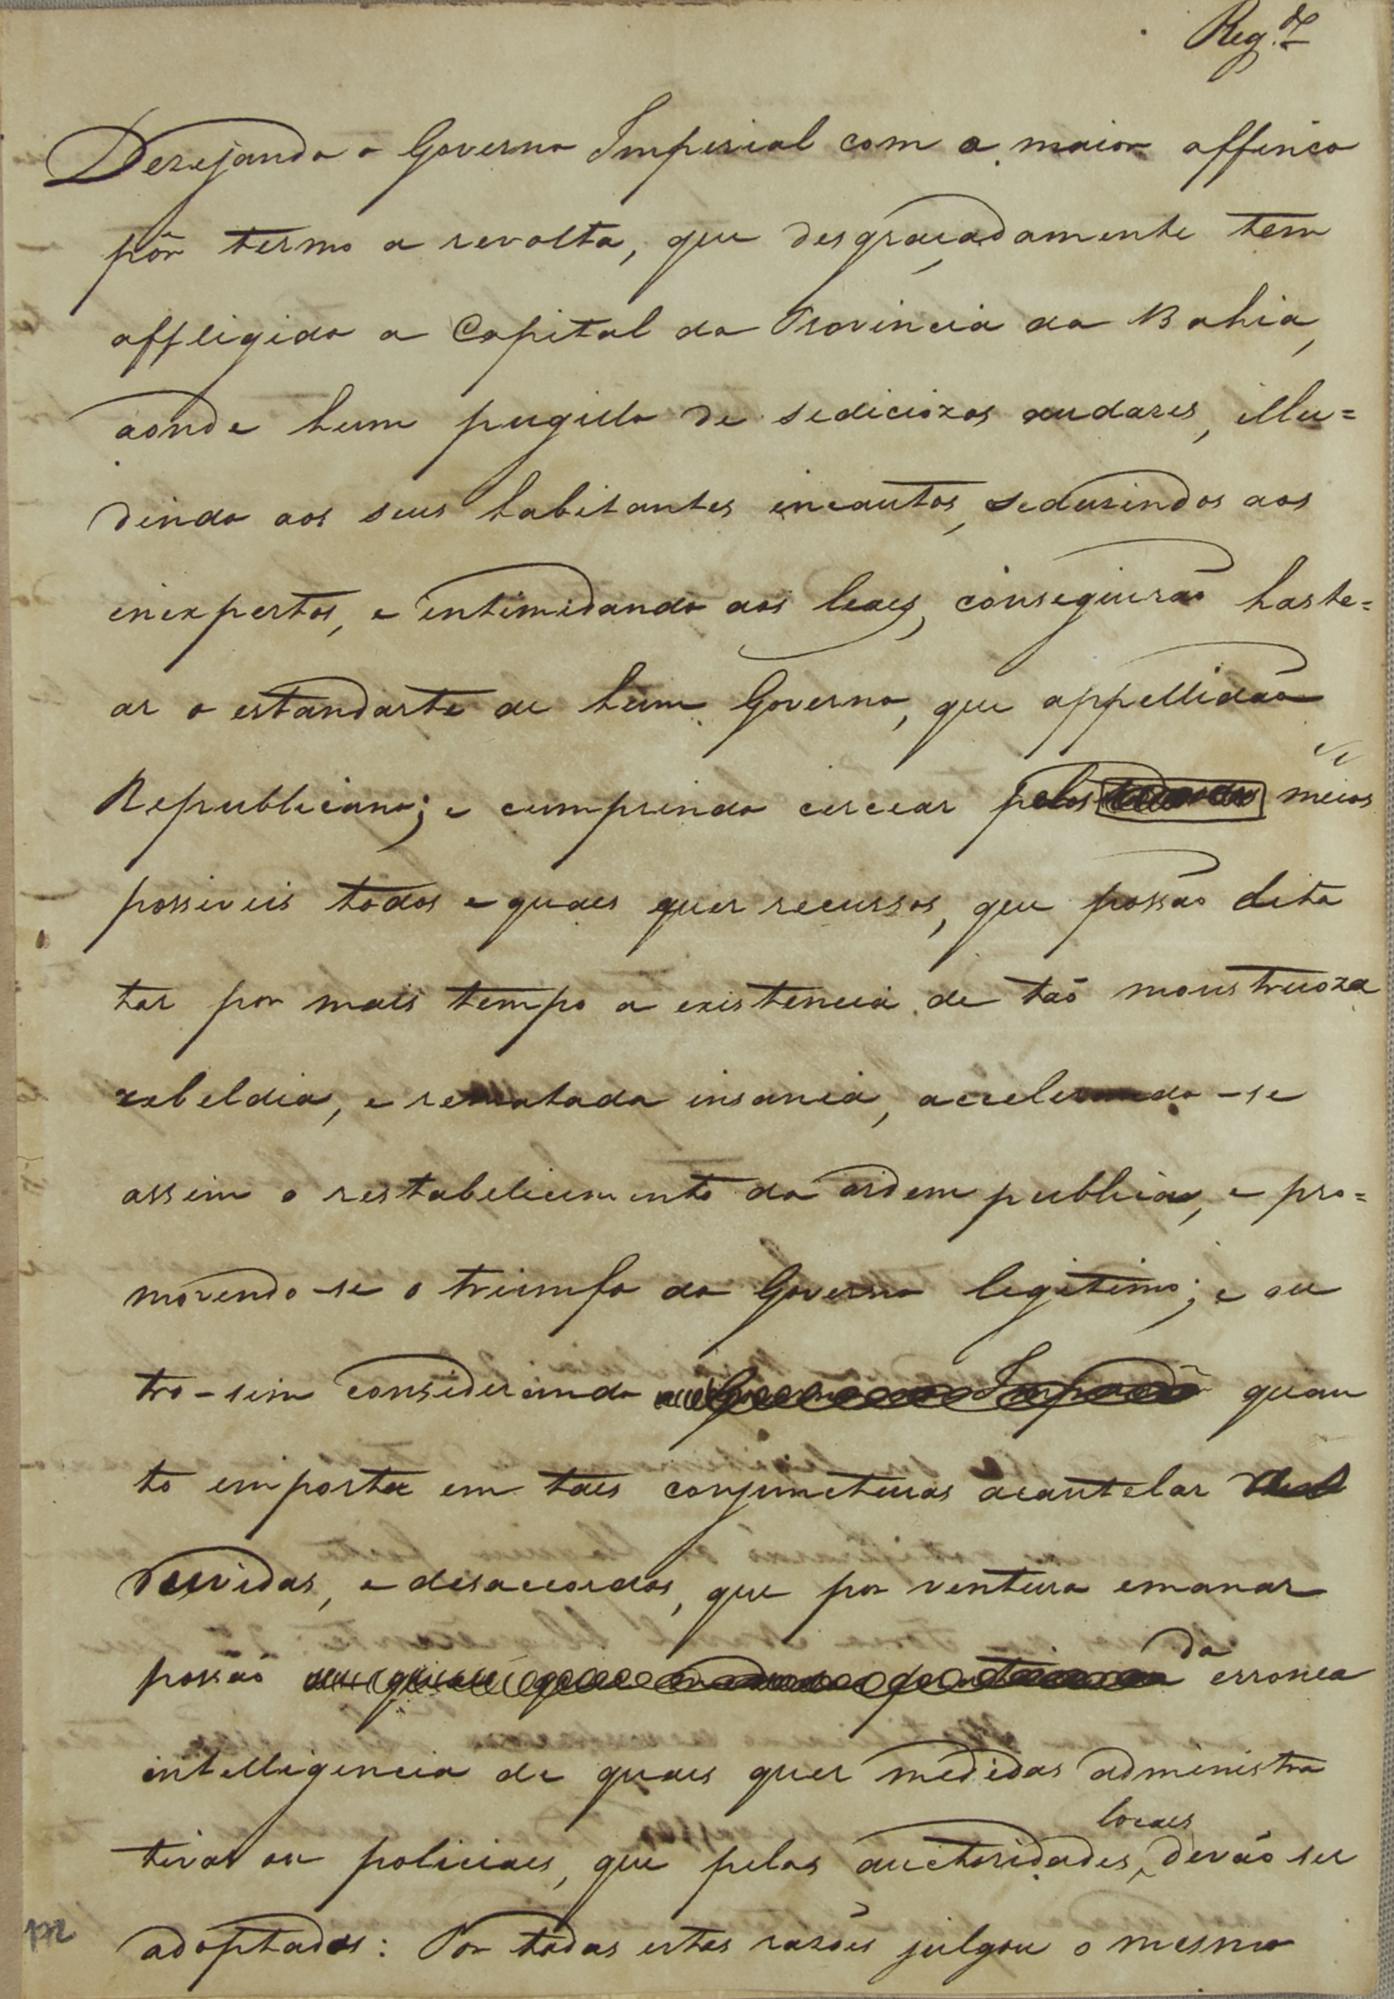 Reg.do
Dezejando o Governo Imperial com o maior affinco
pôr termo a revolta, que desgraçadamente tem
affligido a Capital da Provincia da Bahia,
aonde hum pugillo de sediciozos audazes, illu=
dindo aos seus habitantes incautos, seduzindos aos
inexpertos, e intimidando aos leaes, conseguirão haste=
ar o estandarte de hum Governo, que appellidão
Republicano; e cumprindo cercear pelos meios
possiveis todos e quaes quer recursos, que possão dila
tar por mais tempo a existencia de tão monstruoza
rebeldia, e rematada insania, accelerando-se
assim o restabelicimento da ordem publica, e pro=
movendo-se o triumfo do Governo legitimo; e ou
tro-sim considerando quan
to importa em taes conjuncturas acautelar
duvidas, e desaccordos, que por ventura emanar
possão da erronea
intelligencia de quaes quer medidas administra
tivas ou policiaes, que pelas auctoridades locaes devão ser
adoptadas: Por todas estas razões julgou o mesmo
172